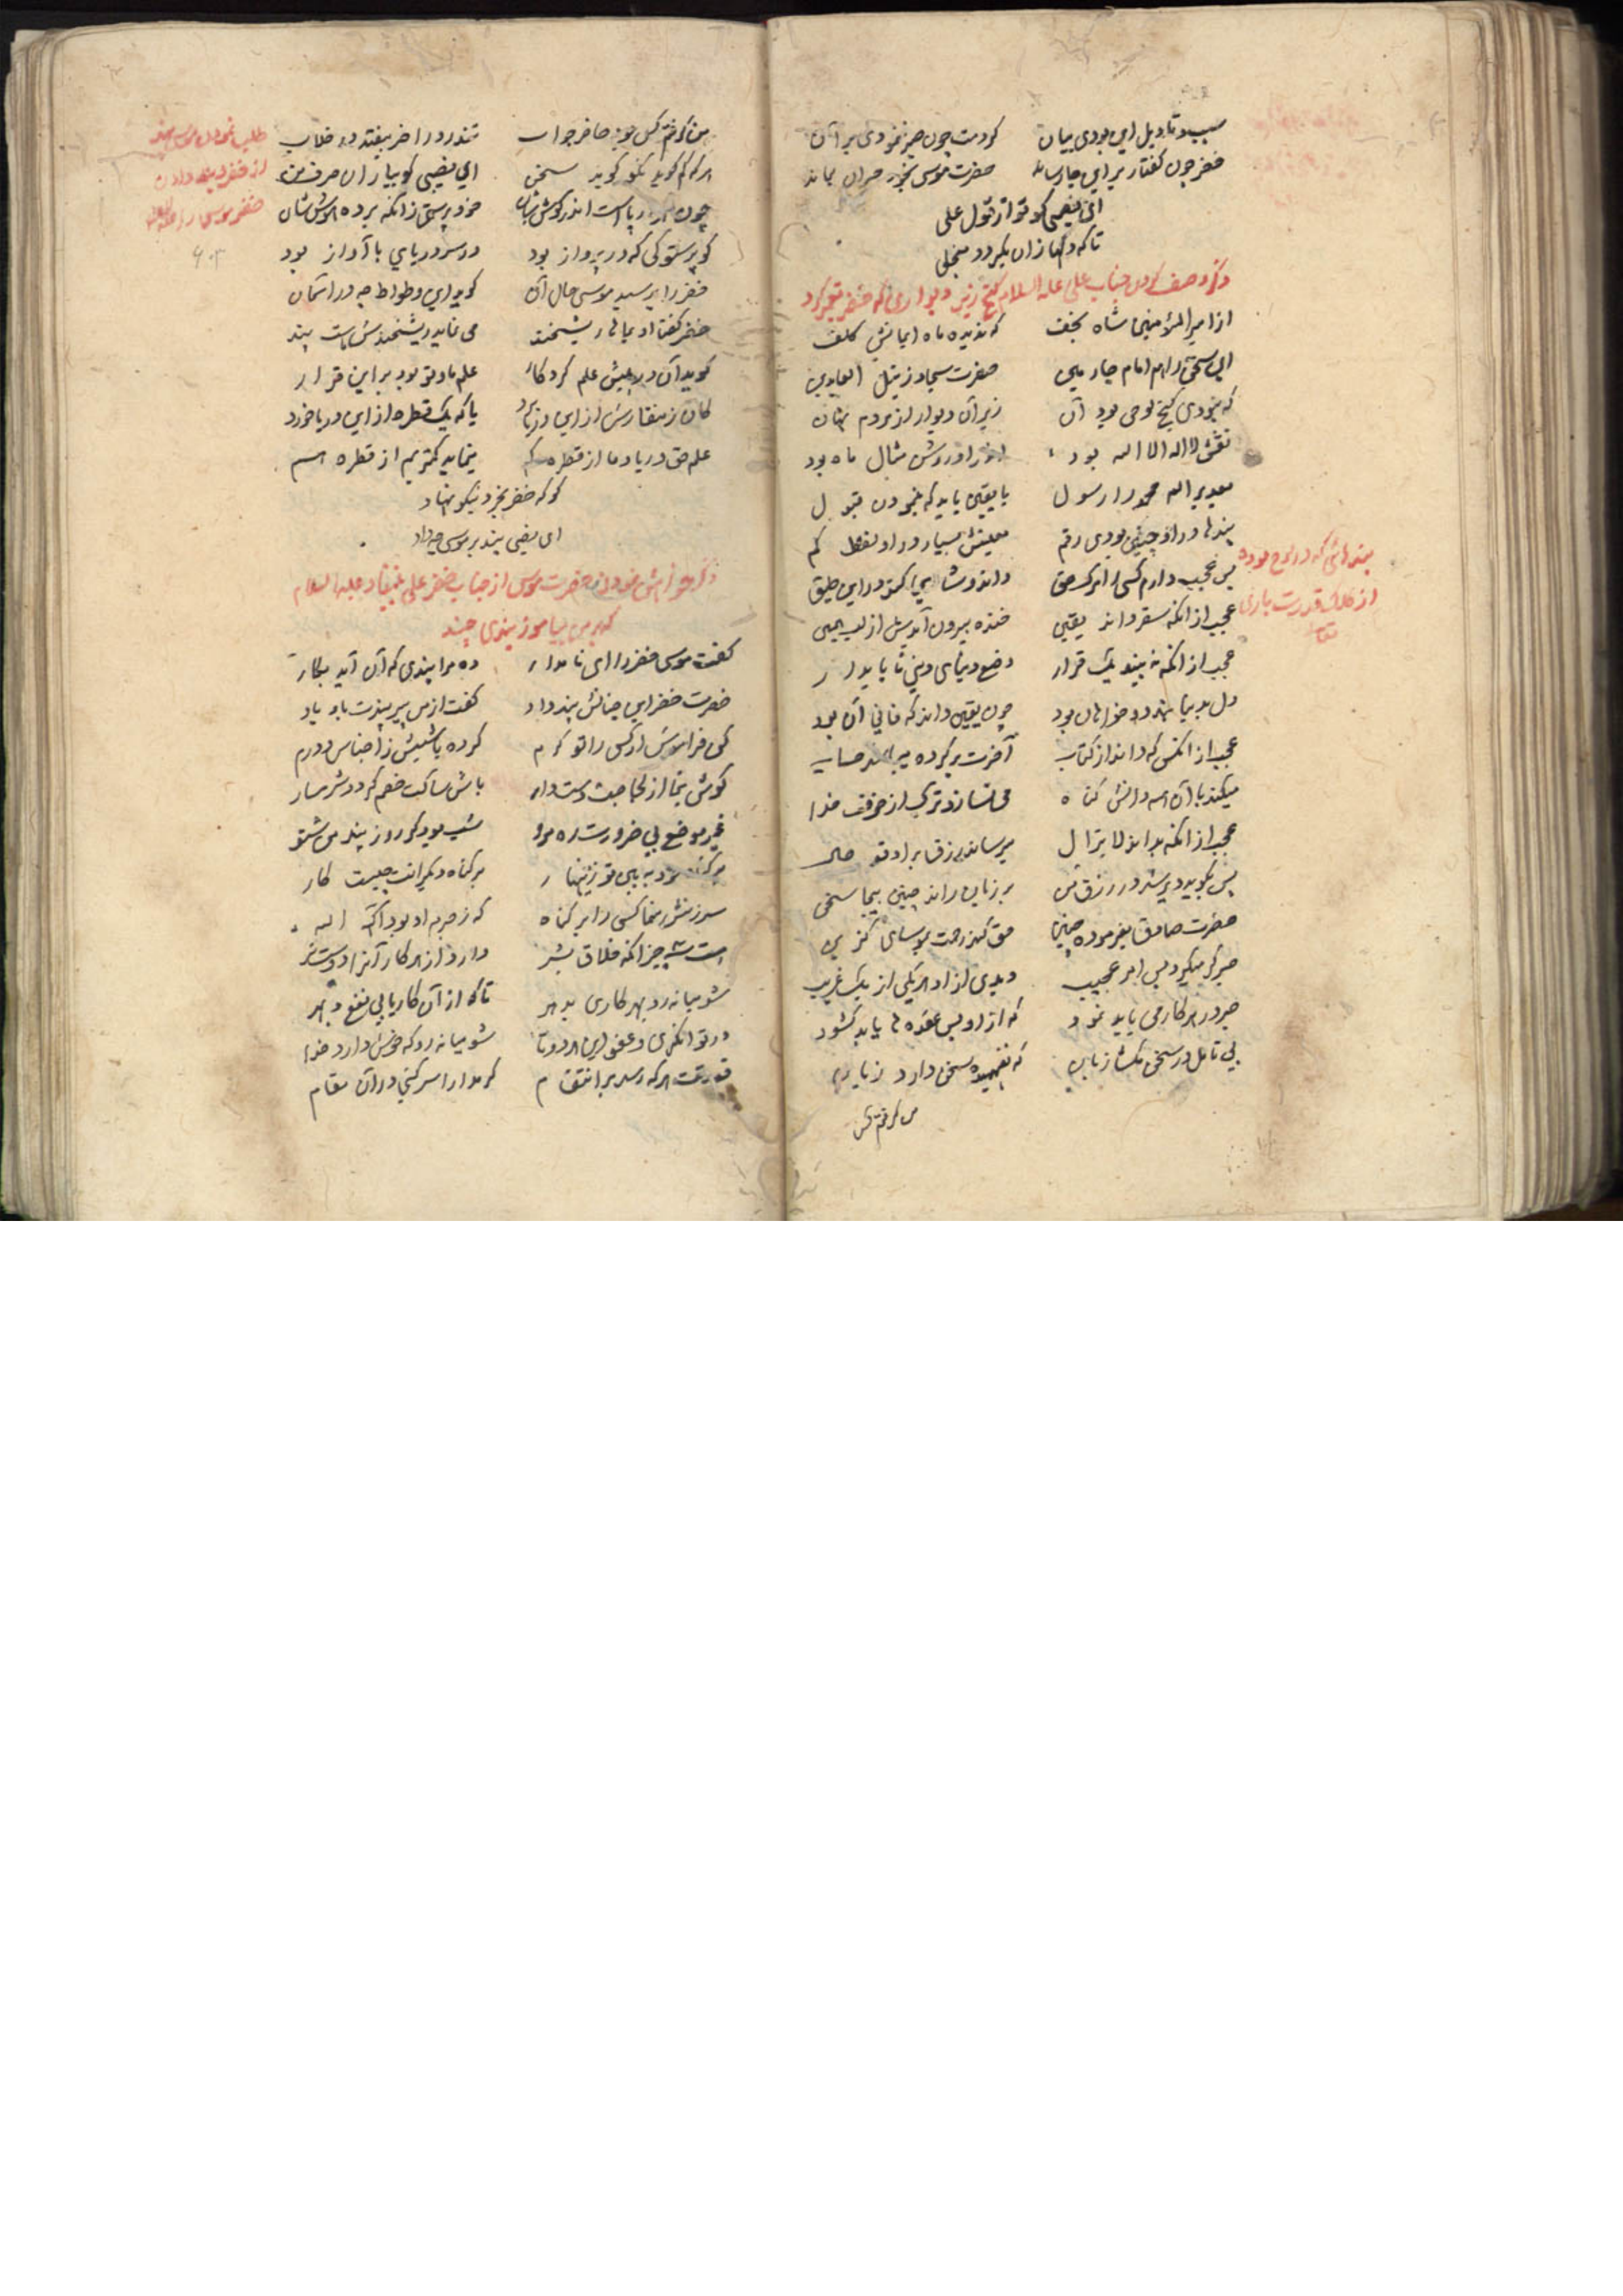 سبب و تاویل این بودی بیان کردمت چون صبر ننمودی بر آن
خضر چون گفتار بر اینجا رساند حضرت موسی بخود حیران بماند
ای نعیمی گو تو از قول علی
تا که دلها زان بگردد منجلی
ذکر وصف کردن جناب علی علیه السلام گنج زیر دیواری که خضر تعمیر کرد
از امیرالمؤمنین شاه نجف که ندیده ماه ایمانش کلف
این سخن را هم امام چارمین حضرت سجاد زین العابدین
که نبودی گنج لوحی بود آن زیر آن دیوار از مردم نهان
نقش لا اله الا الله بود اندر او روشن مثال ماه بود
بعد بر الله محمد را رسول با یقین باید که بنمودن قبول
پندها در او چنین بودی رقم معنیش بسیار در او لفظ کم
بس عجب دارم کسی را مرگ حق داند و شادی کند در این طبق
عجب از آنکه سقر داند یقین خنده بیرون آیدش از لب همین
عجب از آنکه نه بیند یک قرار وضع دنیای دنی ناپایدار
دل بدنیا بندد و خواهان بود چون یقین داند که فانی آن بود
عجب از آنکس که داند از کتاب آخرت بر کرده حساب
میکند با آن همه دانش گناه می نسازد ترک از خوف خدا
عجب از آنکه بداند لایزال میرساند رزق بر او حال
پس بگوید دیر شد در رزق من بر زبان راند چنین بیجا سخن
حضرت صادق بفرموده چنین حق کند رحمت بموسای گزین
صبر گر میکرد بس امر عجیب دیدی از او هر یکی از یک غریب
صبر در هر کار می باید نمود که از او بس عقده ها باید گشود
بی تامل در سخن مگشا زبان که نفهمیده سخن دارد زیان
من گرفتم کس
پندهائی که در لوح بود
از کلک قدرت باری
تعا
من گرفتم کس بود حاضر جواب تندرو را خر بیفتد در خلاب
هر که کم گوید نکو گوید سخن ای نعیمی گو بیاران حرف من
چون اندر گوششان خود پرستی زانکه برده هوششان
گو پرستوکی که در پرواز بود در سر دریای با آواز بود
خضر را پرسید موسی حال آن گوید این وطواط چه در آسمان
خضر گفتا او بما ریشخند می نماید ریشخندش هست پند
گوید آن در پیش علم کردگار علم ما و تو بود بر این قرار
کان ز منقارش از این دریا یا که یک قطره از این دریا خورد
علم حق دریا و ما از قطره کم بنمایم کمتریم از قطره هم
گو که خضر بخرد نیکو نهاد
ای نعیمی پند بر موسی چه داد
ذکر خواهش نمودن حضرت موسی از جناب خضر علی نبینا و علیه السلام
که بر من بیاموز پندی چند
گفت موسی خضر را ای نامدار ده مرا پندی که آن آید بکار
حضرت خضر این چنانش پند داد گفت از من پیر پندت باد یاد
کن فراموش از کسی را تو کرم کرده باشیش ز اجناس و درم
گوش بنما از لجاجت دست دار باش ساکت خصم گردد شرمسار
غیر موضع بی ضرورت ره مرو شب بود گر روز پند من شنو
زینهار بر گناه دیگرانت چیست کار
سرزنش منما کسی را بر گناه که ز جرم او بود آگه اله
هست سه چیز آنکه خلاق بشر دارد از هر کار آنرا دوست تر
شو میانه رو بهر کاری بدهر تا که از آن کار یابی نفع و بهر
در توانگری و عفو این هر دو تا شو میانه رو که خوش دارد خدا
قدرتت هر که رسد بر انتقام گر مدارا سر کنی در آن مقام
طلب نمودن موسی پند
از خضر و پند دادن
خضر موسی را
۶۰۳